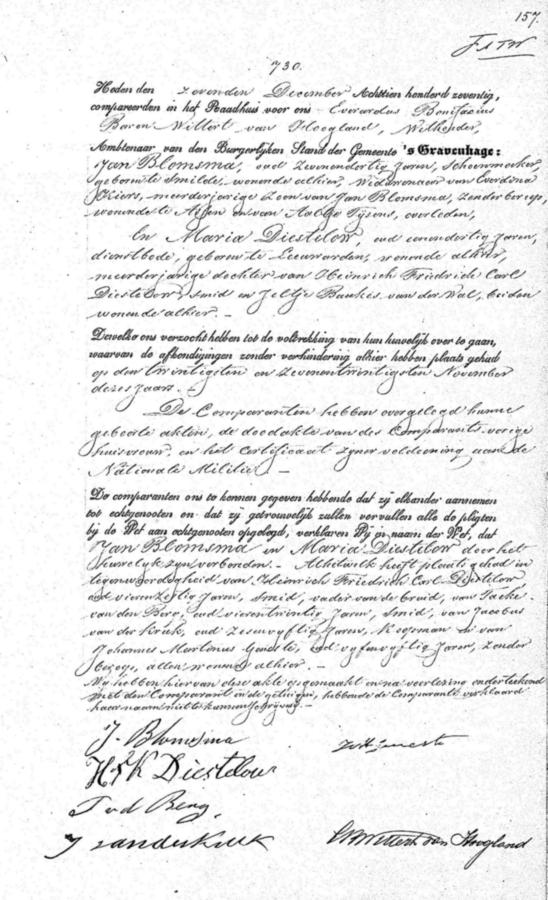 157.
730.
Heden den zevenden December Achttien honderd zeventig,
compareerden in het Raadhuis voor ons Everardus Bonifacius
Baron Wittert van Hoogland, Wethouder,
Ambtenaar van den Burgerlijken Stand der Gemeente 's Gravenhage:
Jan Blomsma, oud zevenendertig Jaren, Schoenmaker,
geboren te Smilde, wonende alhier, Weduwenaar van Everdina
Kiers, meerderjarige Zoon van Jan Blomsma, zonder beroep,
wonende te Assen en van Aaltje Tysens, overleden,
En Maria Diestelow, oud eenendertig Jaren,
dienstbode, geboren te Leeuwarden, wonende alhier,
meerderjarige dochter van Heinrich Friedrich Carl
Diestelow, smid en Jeltje Baukes van der Wal, beiden
wonende alhier. —
Dewelke ons verzocht hebben tot de voltrekking van hun huwelijk over te gaan,
waarvan de afkondigingen zonder verhindering alhier hebben plaats gehad
op den twintigsten en zevenentwintigsten November
dezes jaars. —
De Comparanten hebben overgelegd hunne
geboorte akten, de doodakte van des Comparants vorige
huisvrouw, en het certificaat zyner voldoening aan de
Nationale Militie. —
De comparanten ons te kennen gegeven hebbende dat zij elkander aannemen
tot echtgenooten en dat zij getrouwelijk zullen vervullen alle de pligten
bij de Wet aan echtgenooten opgelegd, verklaren Wij in naam der Wet, dat
Jan Blomsma en Maria Diestelow door het
huwelijk zyn verbonden. — Al hetwelk heeft plaats gehad in
tegenwoordigheid van Heinrich Friedrich Carl Diestelow
oud vierenzestig Jaren, Smid, vader van de bruid, van Tacke
van den Berg, oud vierentwintig Jaren, Smid, van Jacobus
van der Kruk, oud zesenvyftig Jaren, Koopman en van
Johannes Martinus oud vyfenvyftig Jaren, zonder
beroep, allen wonende alhier. —
Wy hebben hiervan deze akte opgemaakt en na voorlezing onderteekend
met den Comparant en de getuigen, hebbende de Comparante verklaard
haar naam niet te kunnen schryven. —
J. Blomsma
HFK Diestelow
T v d Berg
J van der Kruk Wittert van Hoogland